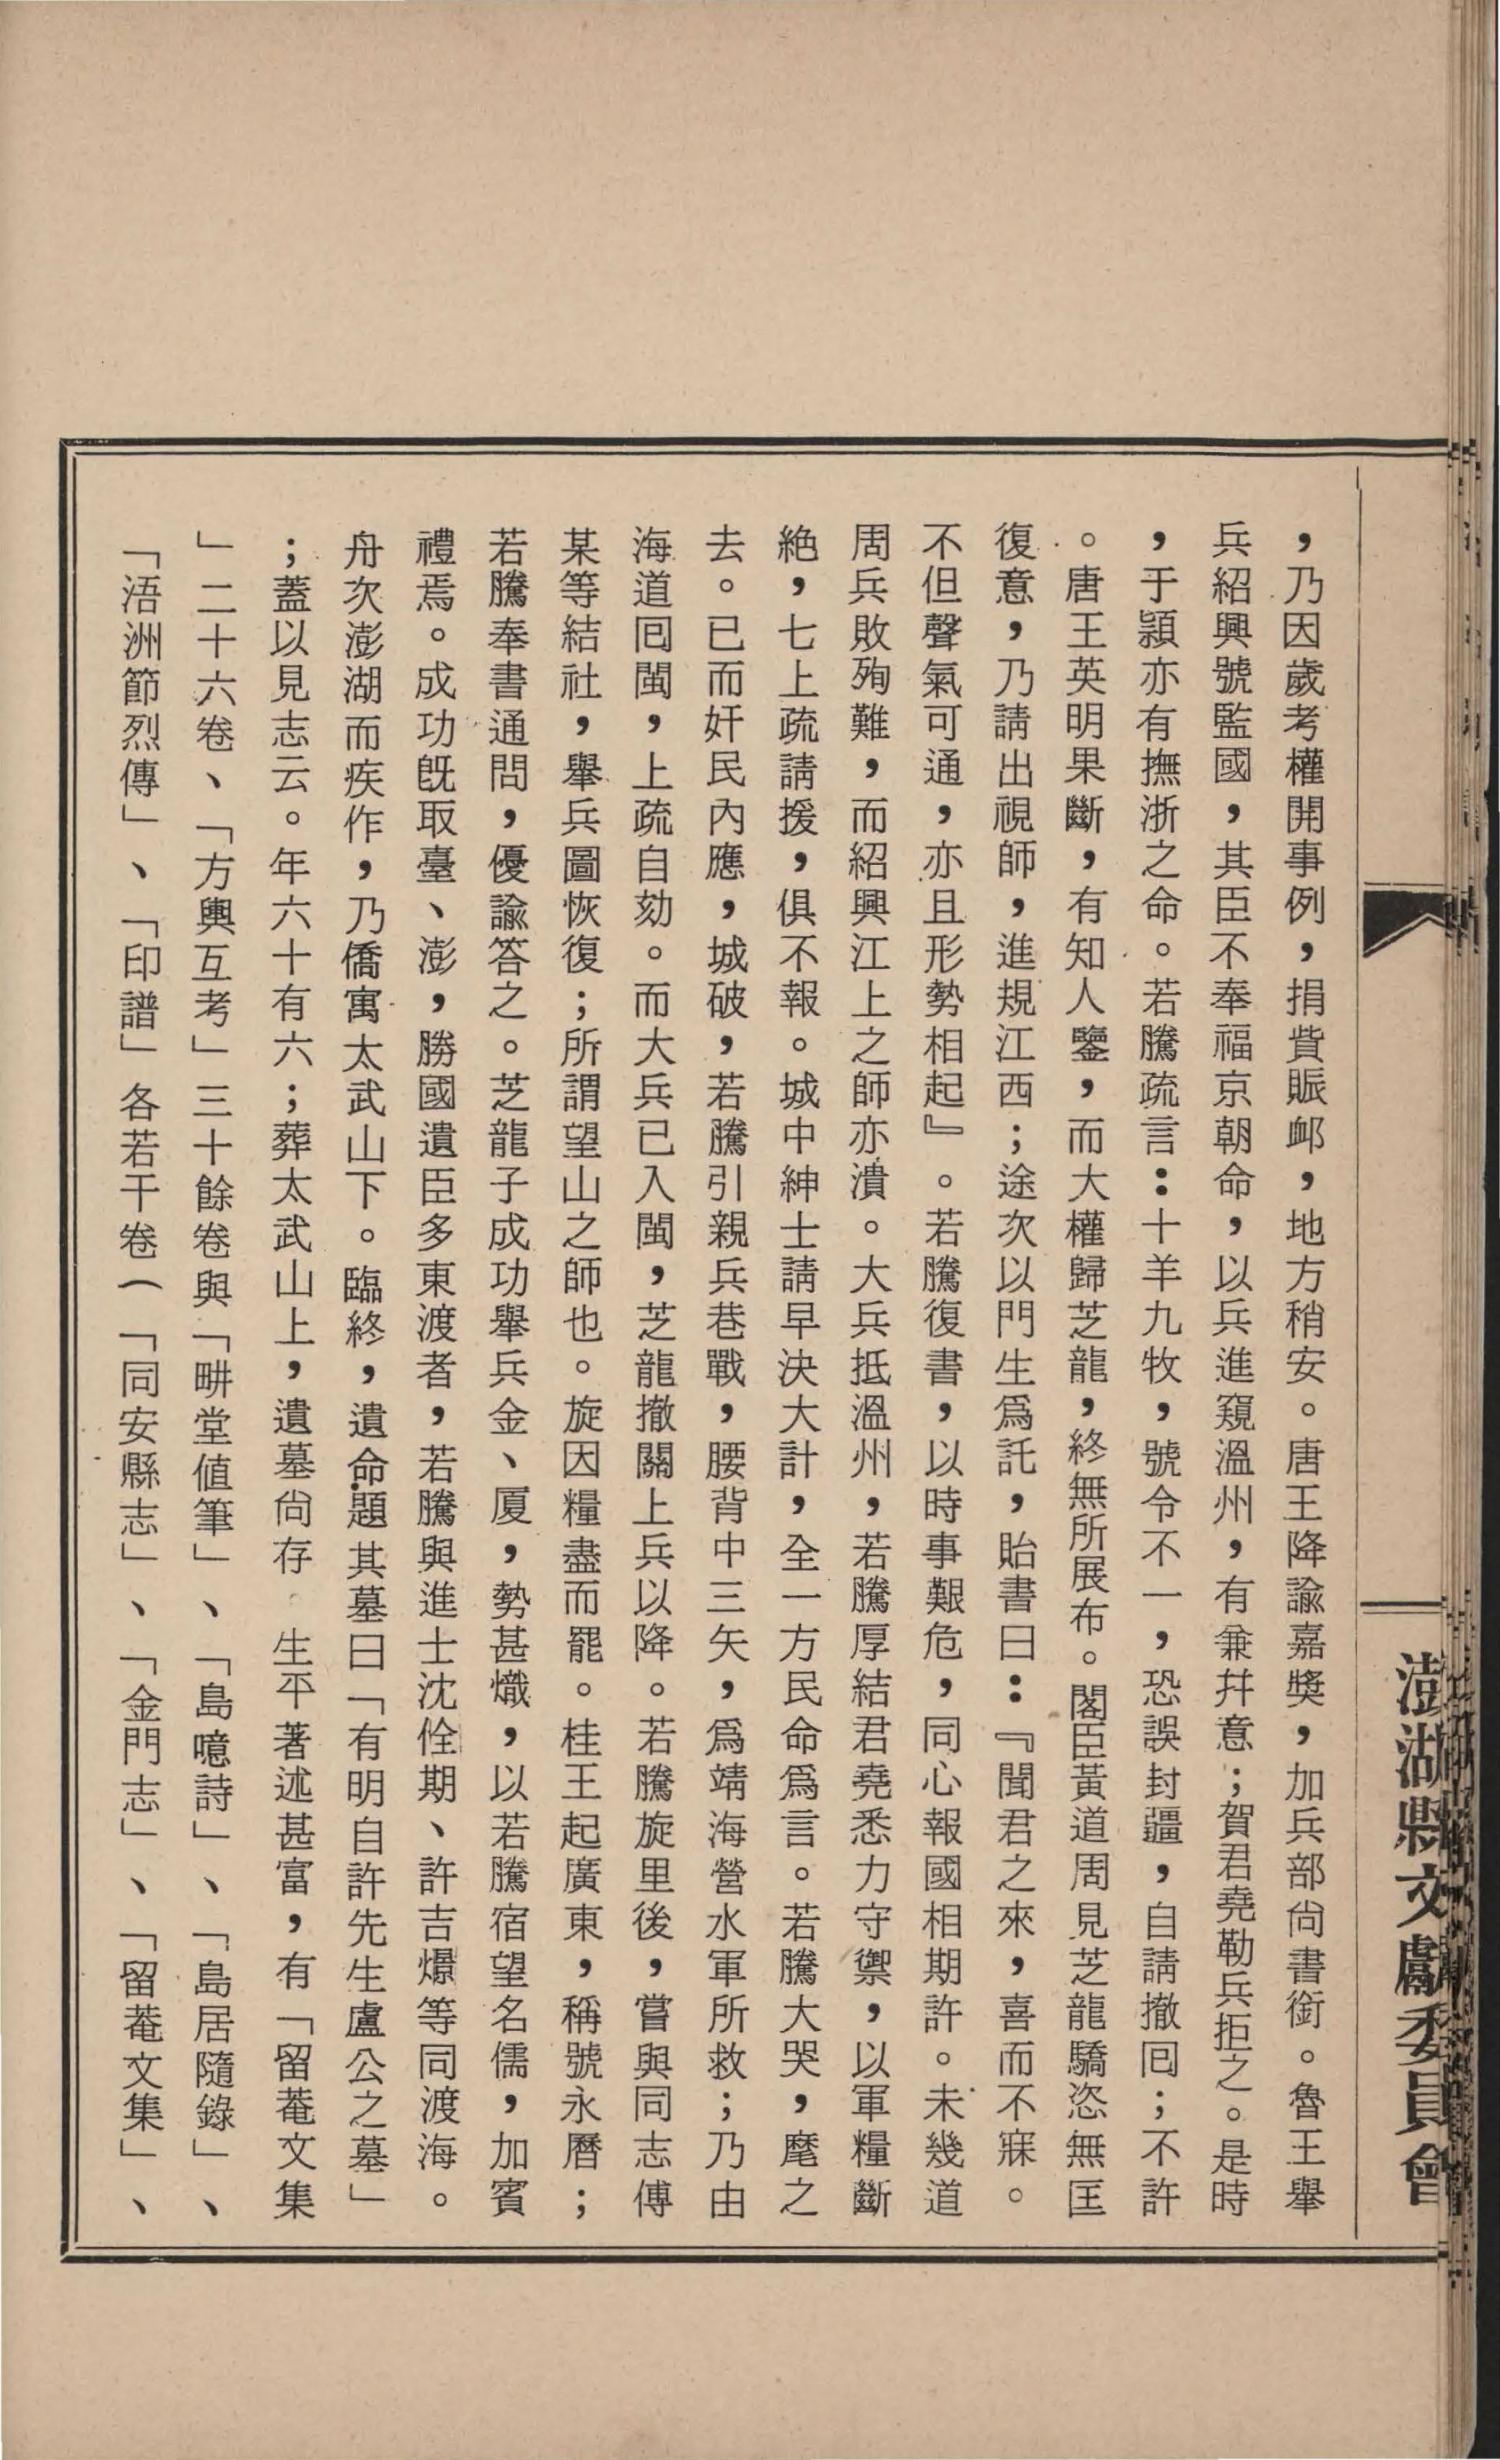 ，乃因歲考權開事例，捐貲賑卹，地方稍安。唐王降諭嘉獎，加兵部尙書銜。魯王舉
兵紹興號監國，其臣不奉福京朝命，以兵進窺溫州，有兼幷意；賀君堯勒兵拒之。是時
，于潁亦有撫浙之命。若騰疏言：十羊九牧，號令不一，恐誤封疆，自請撤囘；不許
。唐王英明果斷，有知人鑒，而大權歸芝龍，終無所展布。閣臣黃道周見芝龍驕恣無匡
復意，乃請出視師，進規江西；途次以門生爲託，貽書曰：『聞君之來，喜而不寐。
不但聲氣可通，亦且形勢相起』。若騰復書，以時事艱危，同心報國相期許。未幾道
周兵敗殉難，而紹興江上之師亦潰。大兵抵溫州，若騰厚結君堯悉力守禦，以軍糧斷
絶，七上疏請援，俱不報。城中紳士請早決大計，全一方民命爲言。若騰大哭，麾之
去。已而奸民內應，城破，若騰引親兵巷戰，腰背中三矢，爲靖海營水軍所救；乃由
海道囘閩，上疏自劾。而大兵已入閩，芝龍撤關上兵以降。若騰旋里後，嘗與同志傅
某等結社，舉兵圖恢復；所謂望山之師也。旋因糧盡而罷。桂王起廣東，稱號永曆；
若騰奉書通問，優諭答之。芝龍子成功舉兵金、厦，勢甚熾，以若騰宿望名儒，加賓
禮焉。成功旣取臺、澎，勝國遺臣多東渡者，若騰與進士沈佺期、許吉燝等同渡海。
舟次澎湖而疾作，乃僑寓太武山下。臨終，遺命題其墓曰「有明自許先生盧公之墓」
；蓋以見志云。年六十有六；葬太武山上，遺墓尙存　生平著述甚富，有「留菴文集
」二十六卷、「方輿互考」三十餘卷與「畊堂値筆」、「島噫詩」、「島居隨錄」、
「浯洲節烈傳」、「印譜」各若干卷（「同安縣志」、「金門志」、「留菴文集」、
澎湖縣文獻委員會